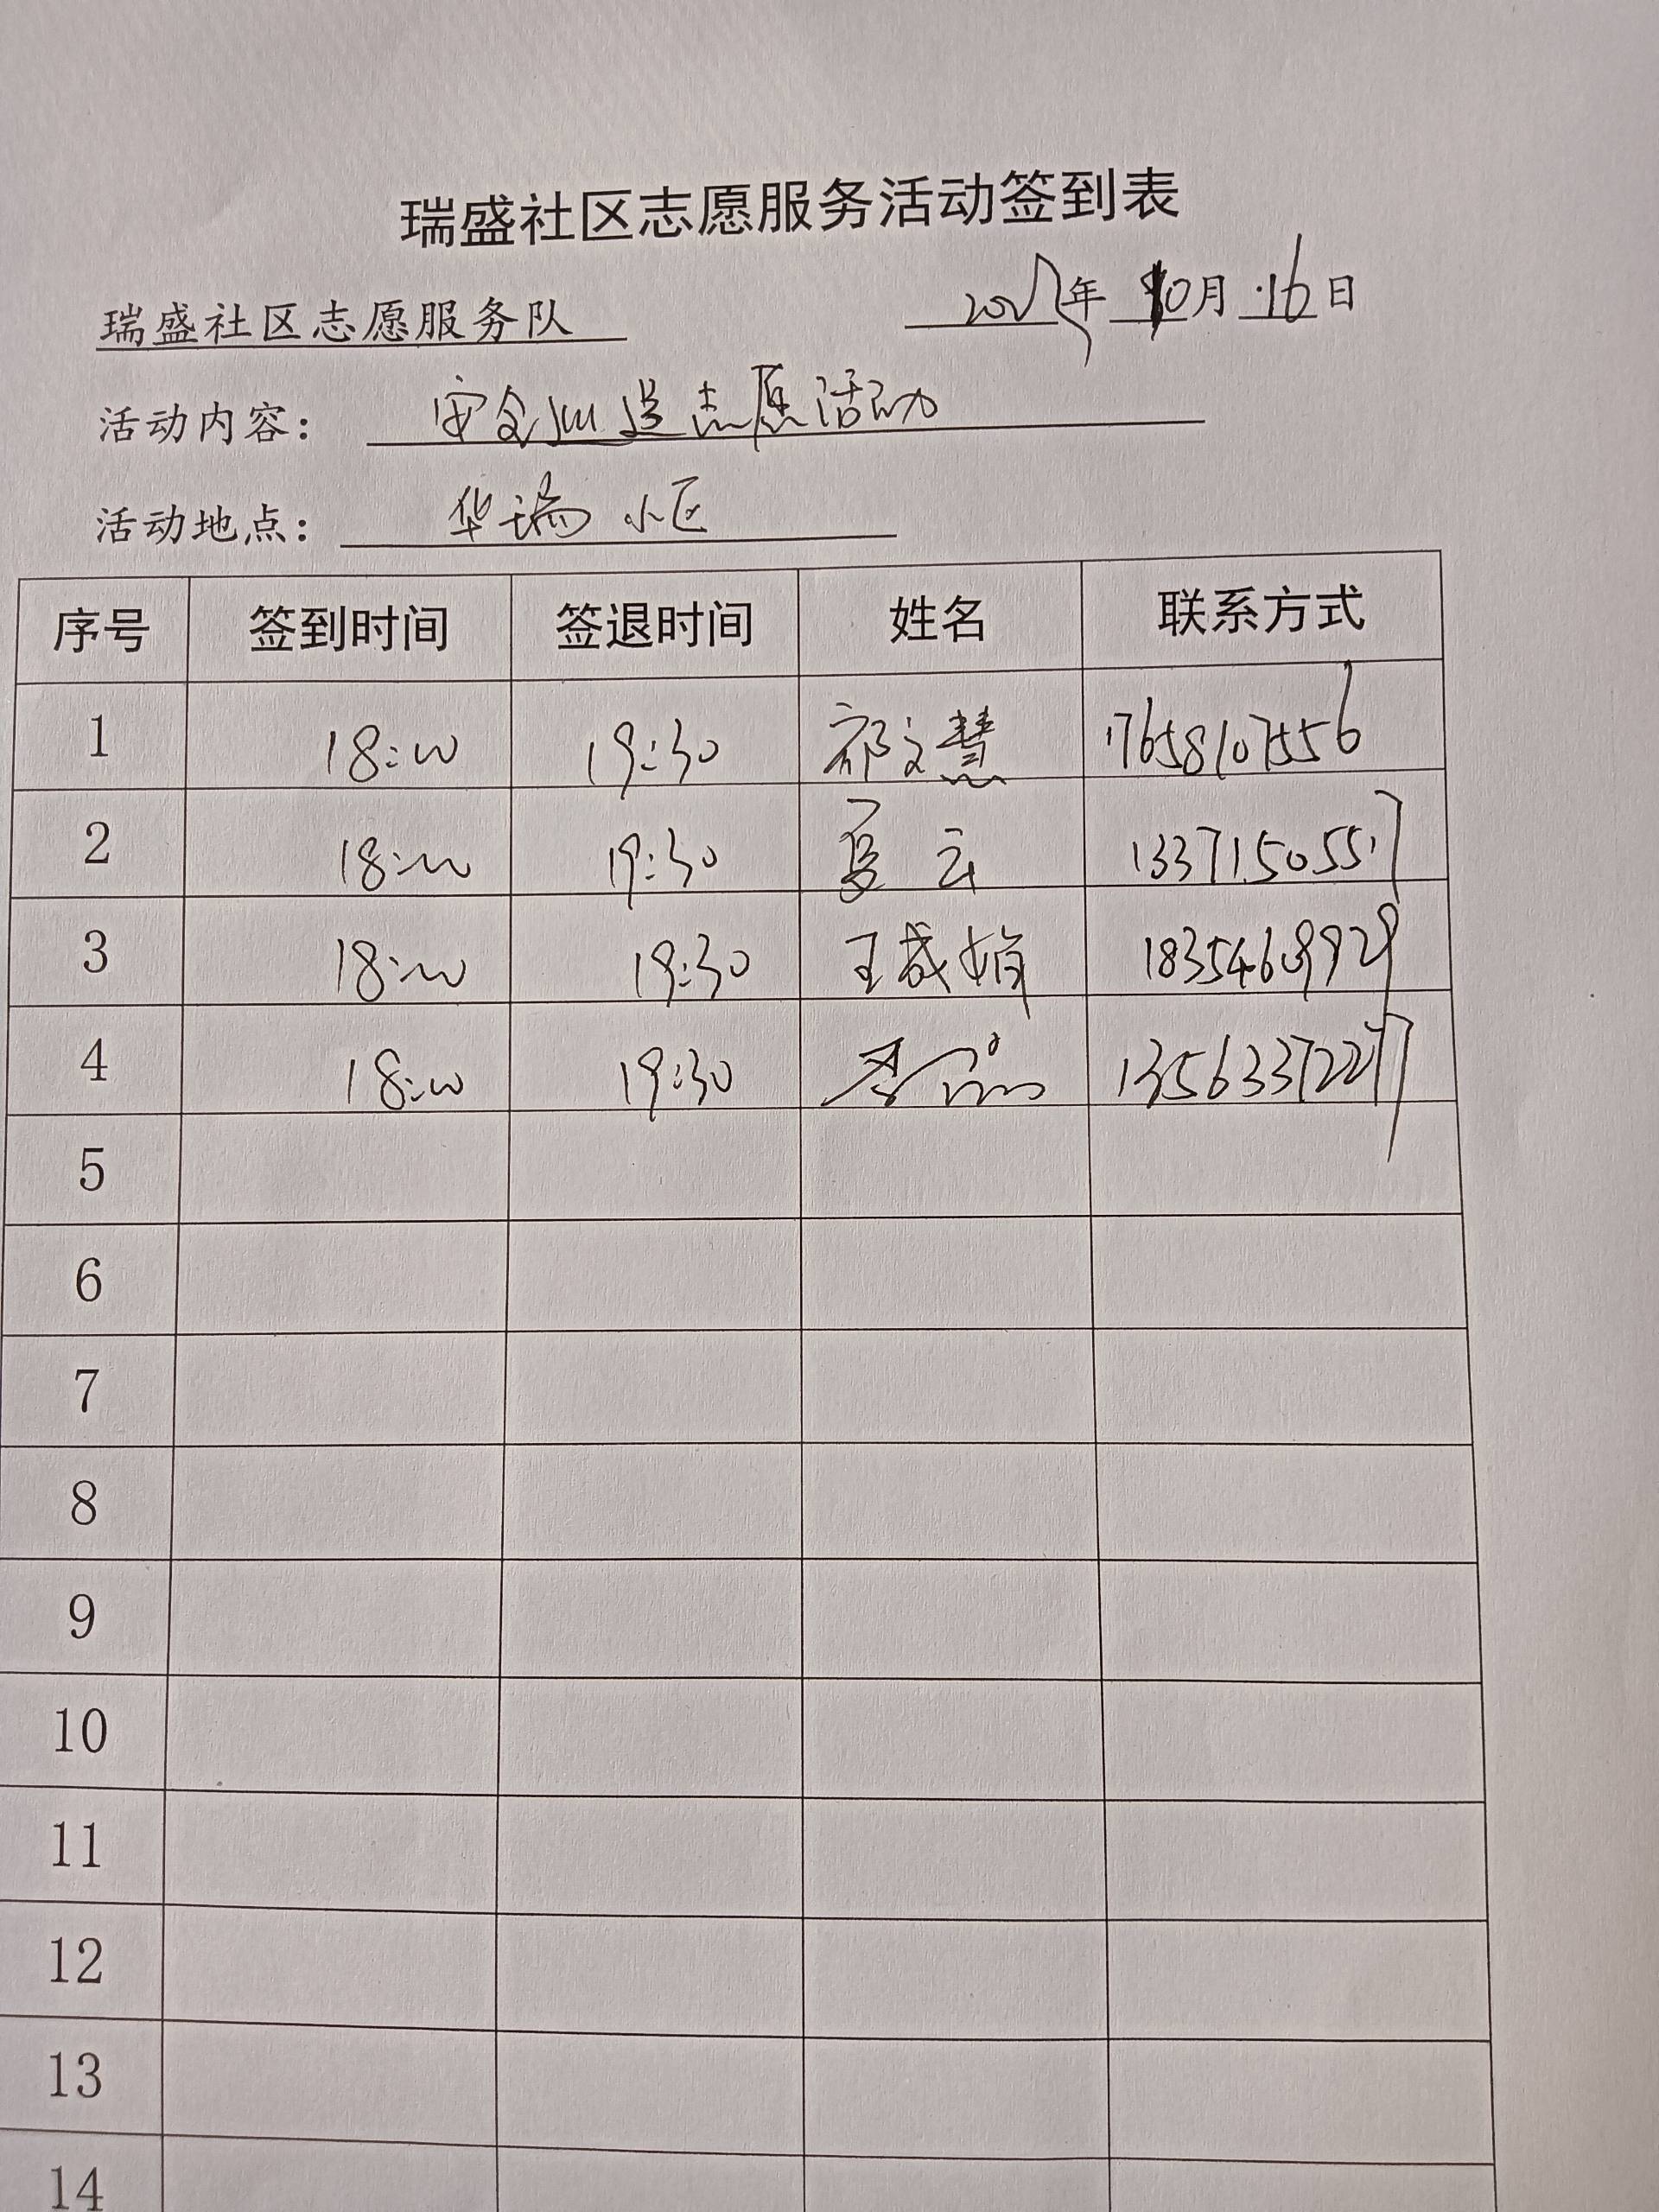 瑞盛社区志愿服务活动签到表
瑞盛社区志愿服务队 年 10月 16日
活动内容: 安全巡逻志愿活动
活动地点: 华瑞小区
序号 签到时间 签退时间 姓名 联系方式
1 18:00 19:30 祁文慧 17658107556
2 18:00 19:30 夏云 13371505517
3 18:00 19:30 王成娟
4 18:00 19:30 13563372277
5
6
7
8
9
10
11
12
13
14